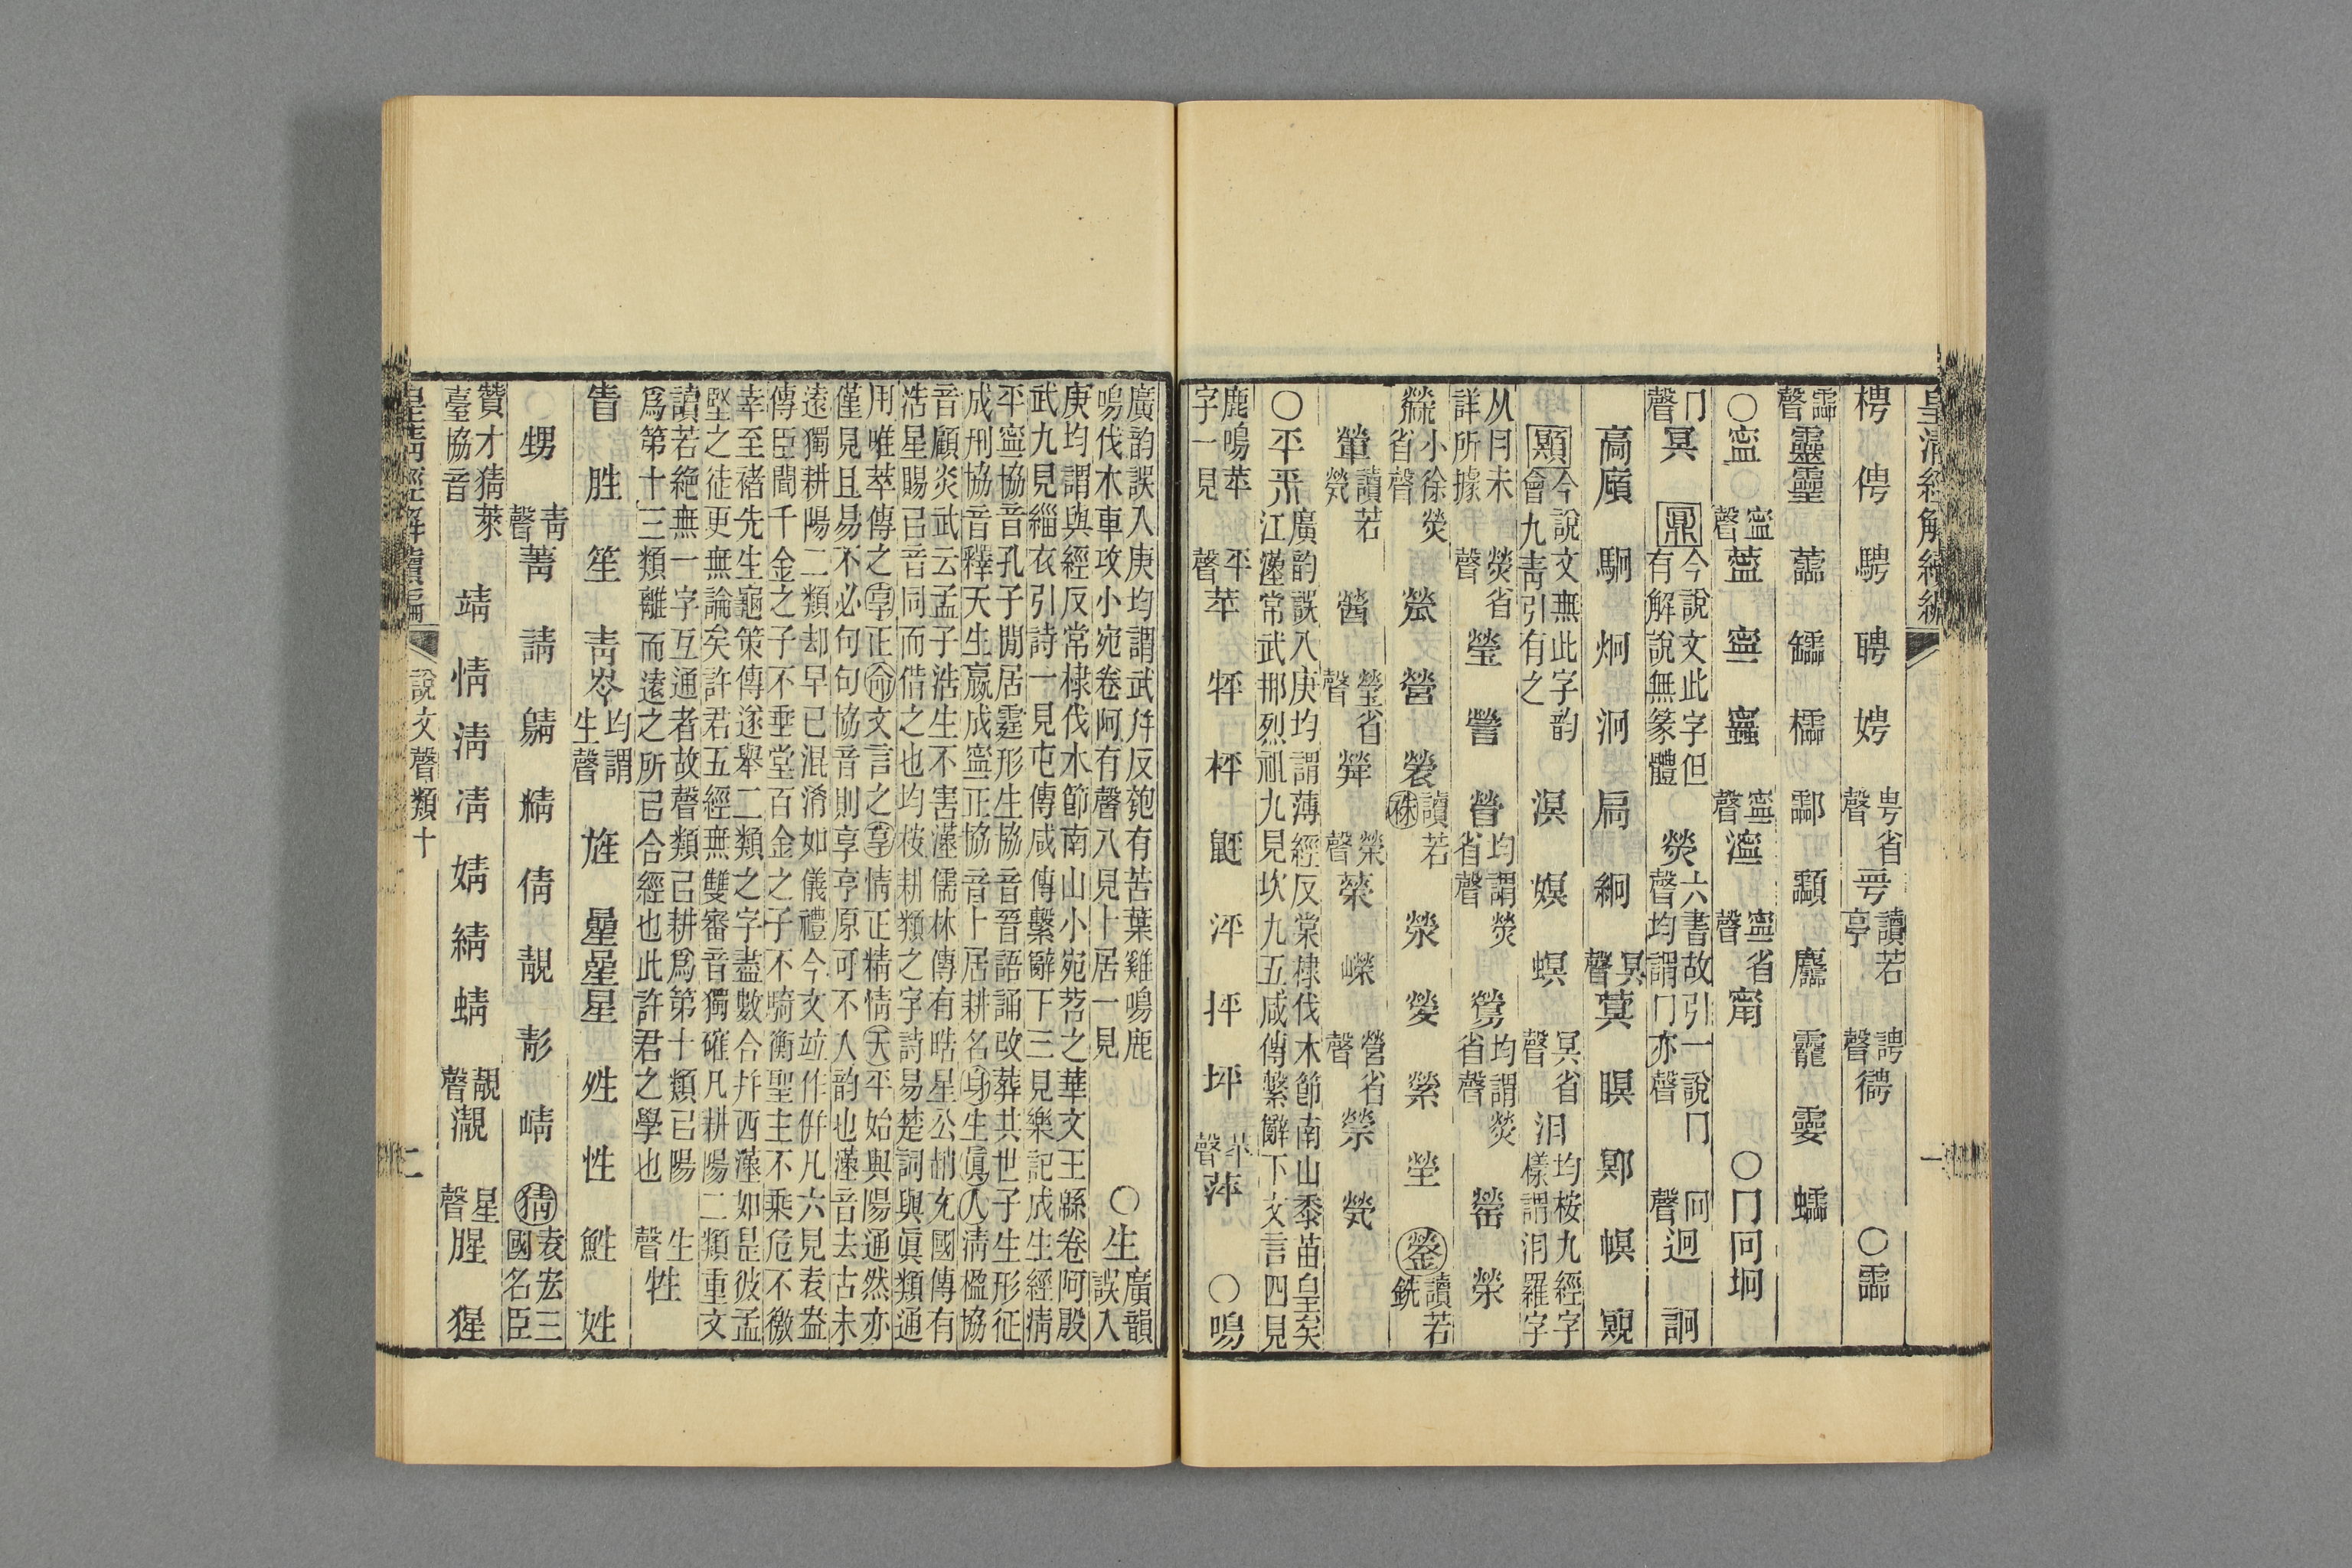 皇清經解續編
一
梬俜騁聘娉 甹省聲 甹 讀若亭 聘聲 德 ○霝
霝聲 靈 蘦 櫺 酃 顬 麢 龗 孁 蠕
○寍 寍聲 寧 寍聲 濫 寧省聲 甯 ○冂冋坰
冂聲 冥 鼏 今說文此字但有解說無篆體 熒 六書故引一說冂聲均謂冂亦聲 冋聲 迥 詗
高廎 駉 炯 泂 扃 絅 冥聲 蓂 瞑 鄍 幎 覭
顯 今說文無此字韵會九靑引有之 溟 嫇 螟 冥省聲 汨 均桉九經字㨾謂汨羅字
从冃未詳所據 熒省聲 瑩 謍 營 均謂熒省聲 勞 均謂熒省聲 罃 榮
小徐熒省聲 營 褮 讀若 滎 縈 塋 鎣 讀若銑
讀若煢 瑩省聲 榮聲 嶸 營省聲 禜 煢
○平 廣韵誤入庚均謂薄經反棠棣伐木節南山黍苗皇矣江漢常武那烈祖九見坎九五咸傳繫辭下文言四見
鹿鳴苹字一見 平聲 苹 枰 泙 抨 坪 苹聲 萍 ○鳴
廣韵誤入庚均謂武幷反匏有苦葉雞鳴鹿鳴伐木車攻小宛卷阿有聲八見十居一見 ○生 廣韻誤入
庚均謂與經反常棣伐木節南山小宛苕之華文王緜卷阿殷武九見緇衣引詩一見屯傳咸傳繫辭下三見樂記成生經淸
平寧協音孔子閒居霆形生協音晉語誦改葬共世子生形征成刑協音釋天生嬴成寧正協音卜居耕名身生眞人淸楹協
音顧炎武云孟子浩生不害漢儒林傳有晧星公趙充國傳有浩星賜已音同而借之也均桉耕類之字詩易楚詞與眞類通
用唯苹傳之享正命文言之享情正精情天平始與陽通然亦僅見且易不必句句協音則享亨原可不入韵也漢音去古未
遠獨耕陽二類却早已混淆如儀禮今文竝作併凡六見袁盎傳臣聞千金之子不垂堂百金之子不騎衡聖主不乘危不徼
幸至褚先生龜策傳遂舉二類之字盡數合幷西漢如是彼孟堅之徒更無論矣許君五經無雙審音獨確凡耕陽二類重文
讀若絶無一字互通者故聲類已耕爲第十類已陽爲第十三類離而遠之所已合經也此許君之學也 生聲 牲
眚 胜 笙 靑 均謂生聲 旌 曐星 性 鮏 姓
甥 靑聲 菁 請 精 倩 靚 靘 崝 猜 袁宏三國名臣
贊才猜萊臺協音 靖 情 淸 凊 婧 綪 蜻 靚聲 瀞 星聲 腥 猩
皇淸經解續編
說文聲類十
二